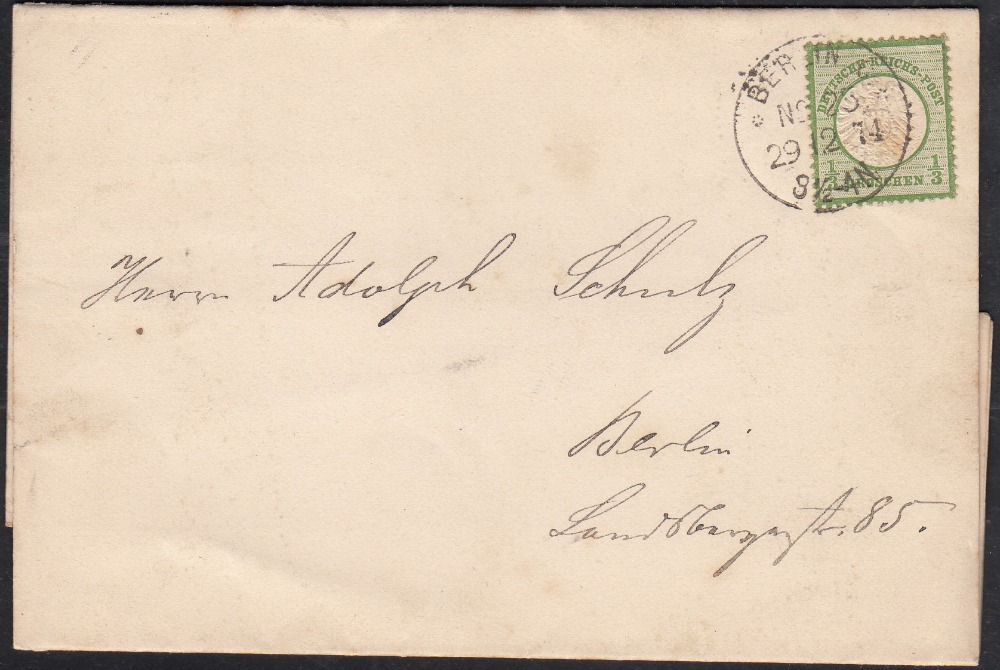 BERLIN
NO
29 12 74
8½-9N
DEUTSCHE-REICHS-POST
1/3 GROSCHEN. 1/3
Herrn Adolph Schulz
Berlin
Landsbergerstr. 85.